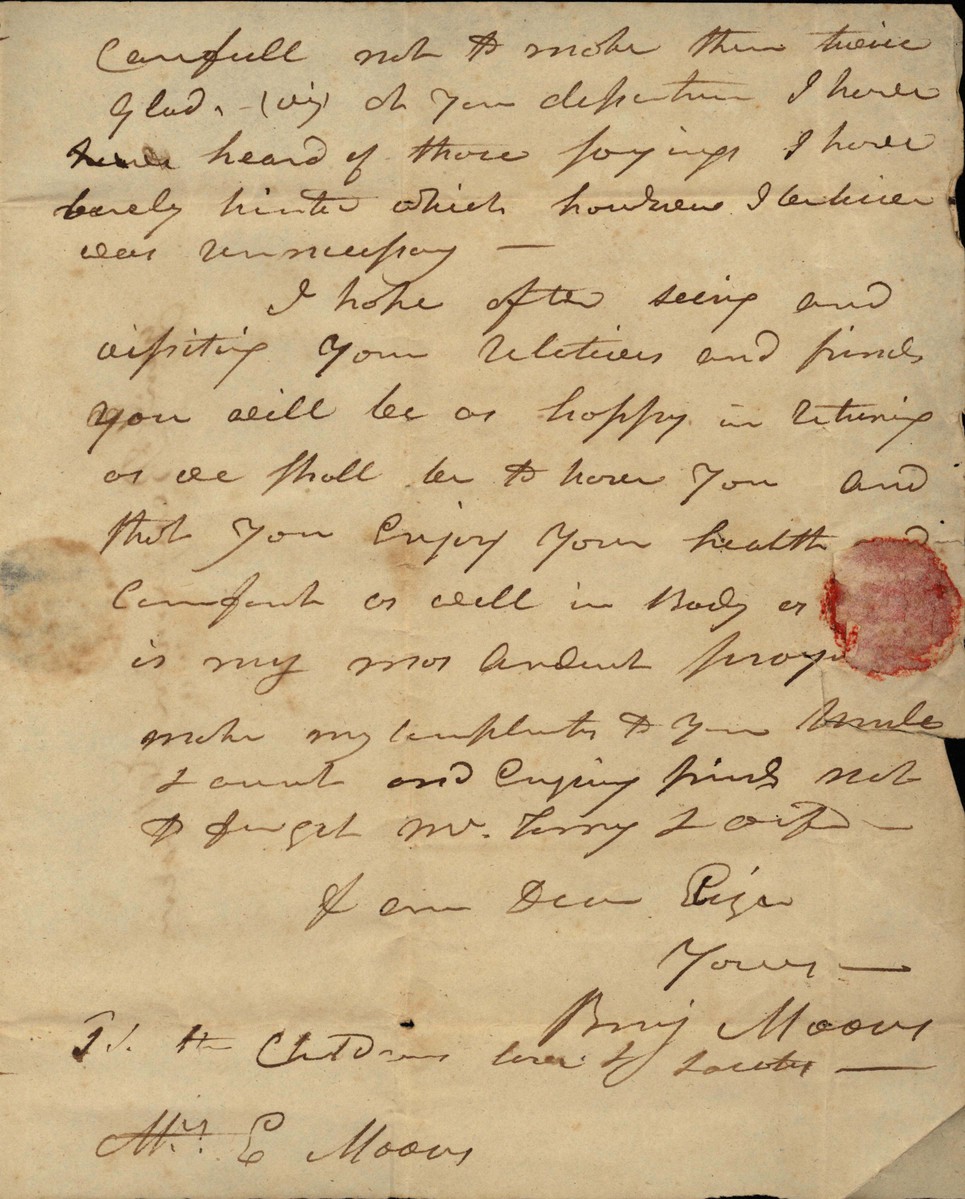 Carefull not to make them twice
Glad, - (viz) at Your departure I have
never heard of those sayings I have
barely hinted which however I believe
was unnecessary —
I hope after seeing and
vissiting Your relatives and friends
you will be as happy in returning
as we shall be to have You and
that You Enjoy Your health
Comfort as well in Body as
is my most Ardent pray
make my Compliments to Your Uncle
& aunt and Enquiring friends not
to forget Mr. Terry & wife —
I am Dear Eliza
Yours —
Benj Moores
the Childrens love to —
Mrs. E Moores